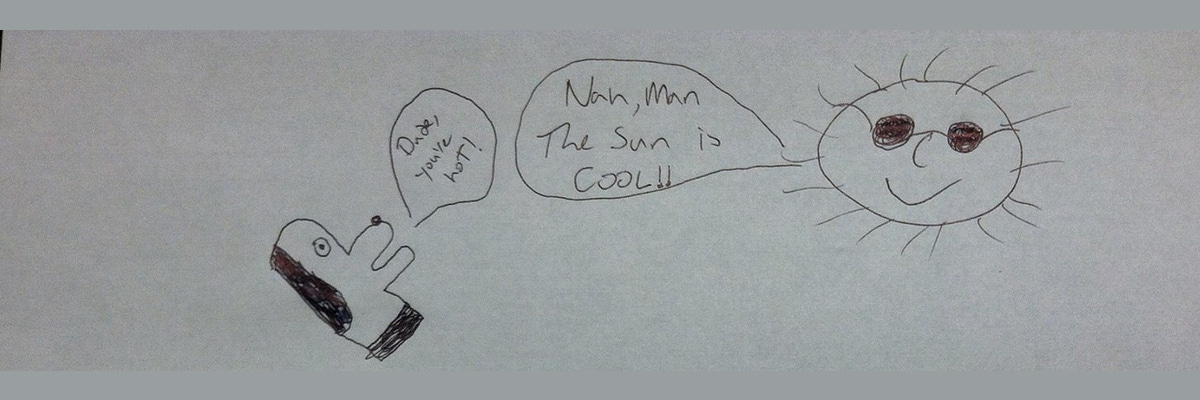 Dude,
you're
hoT!
Nah, Man
The Sun is
COOL!!